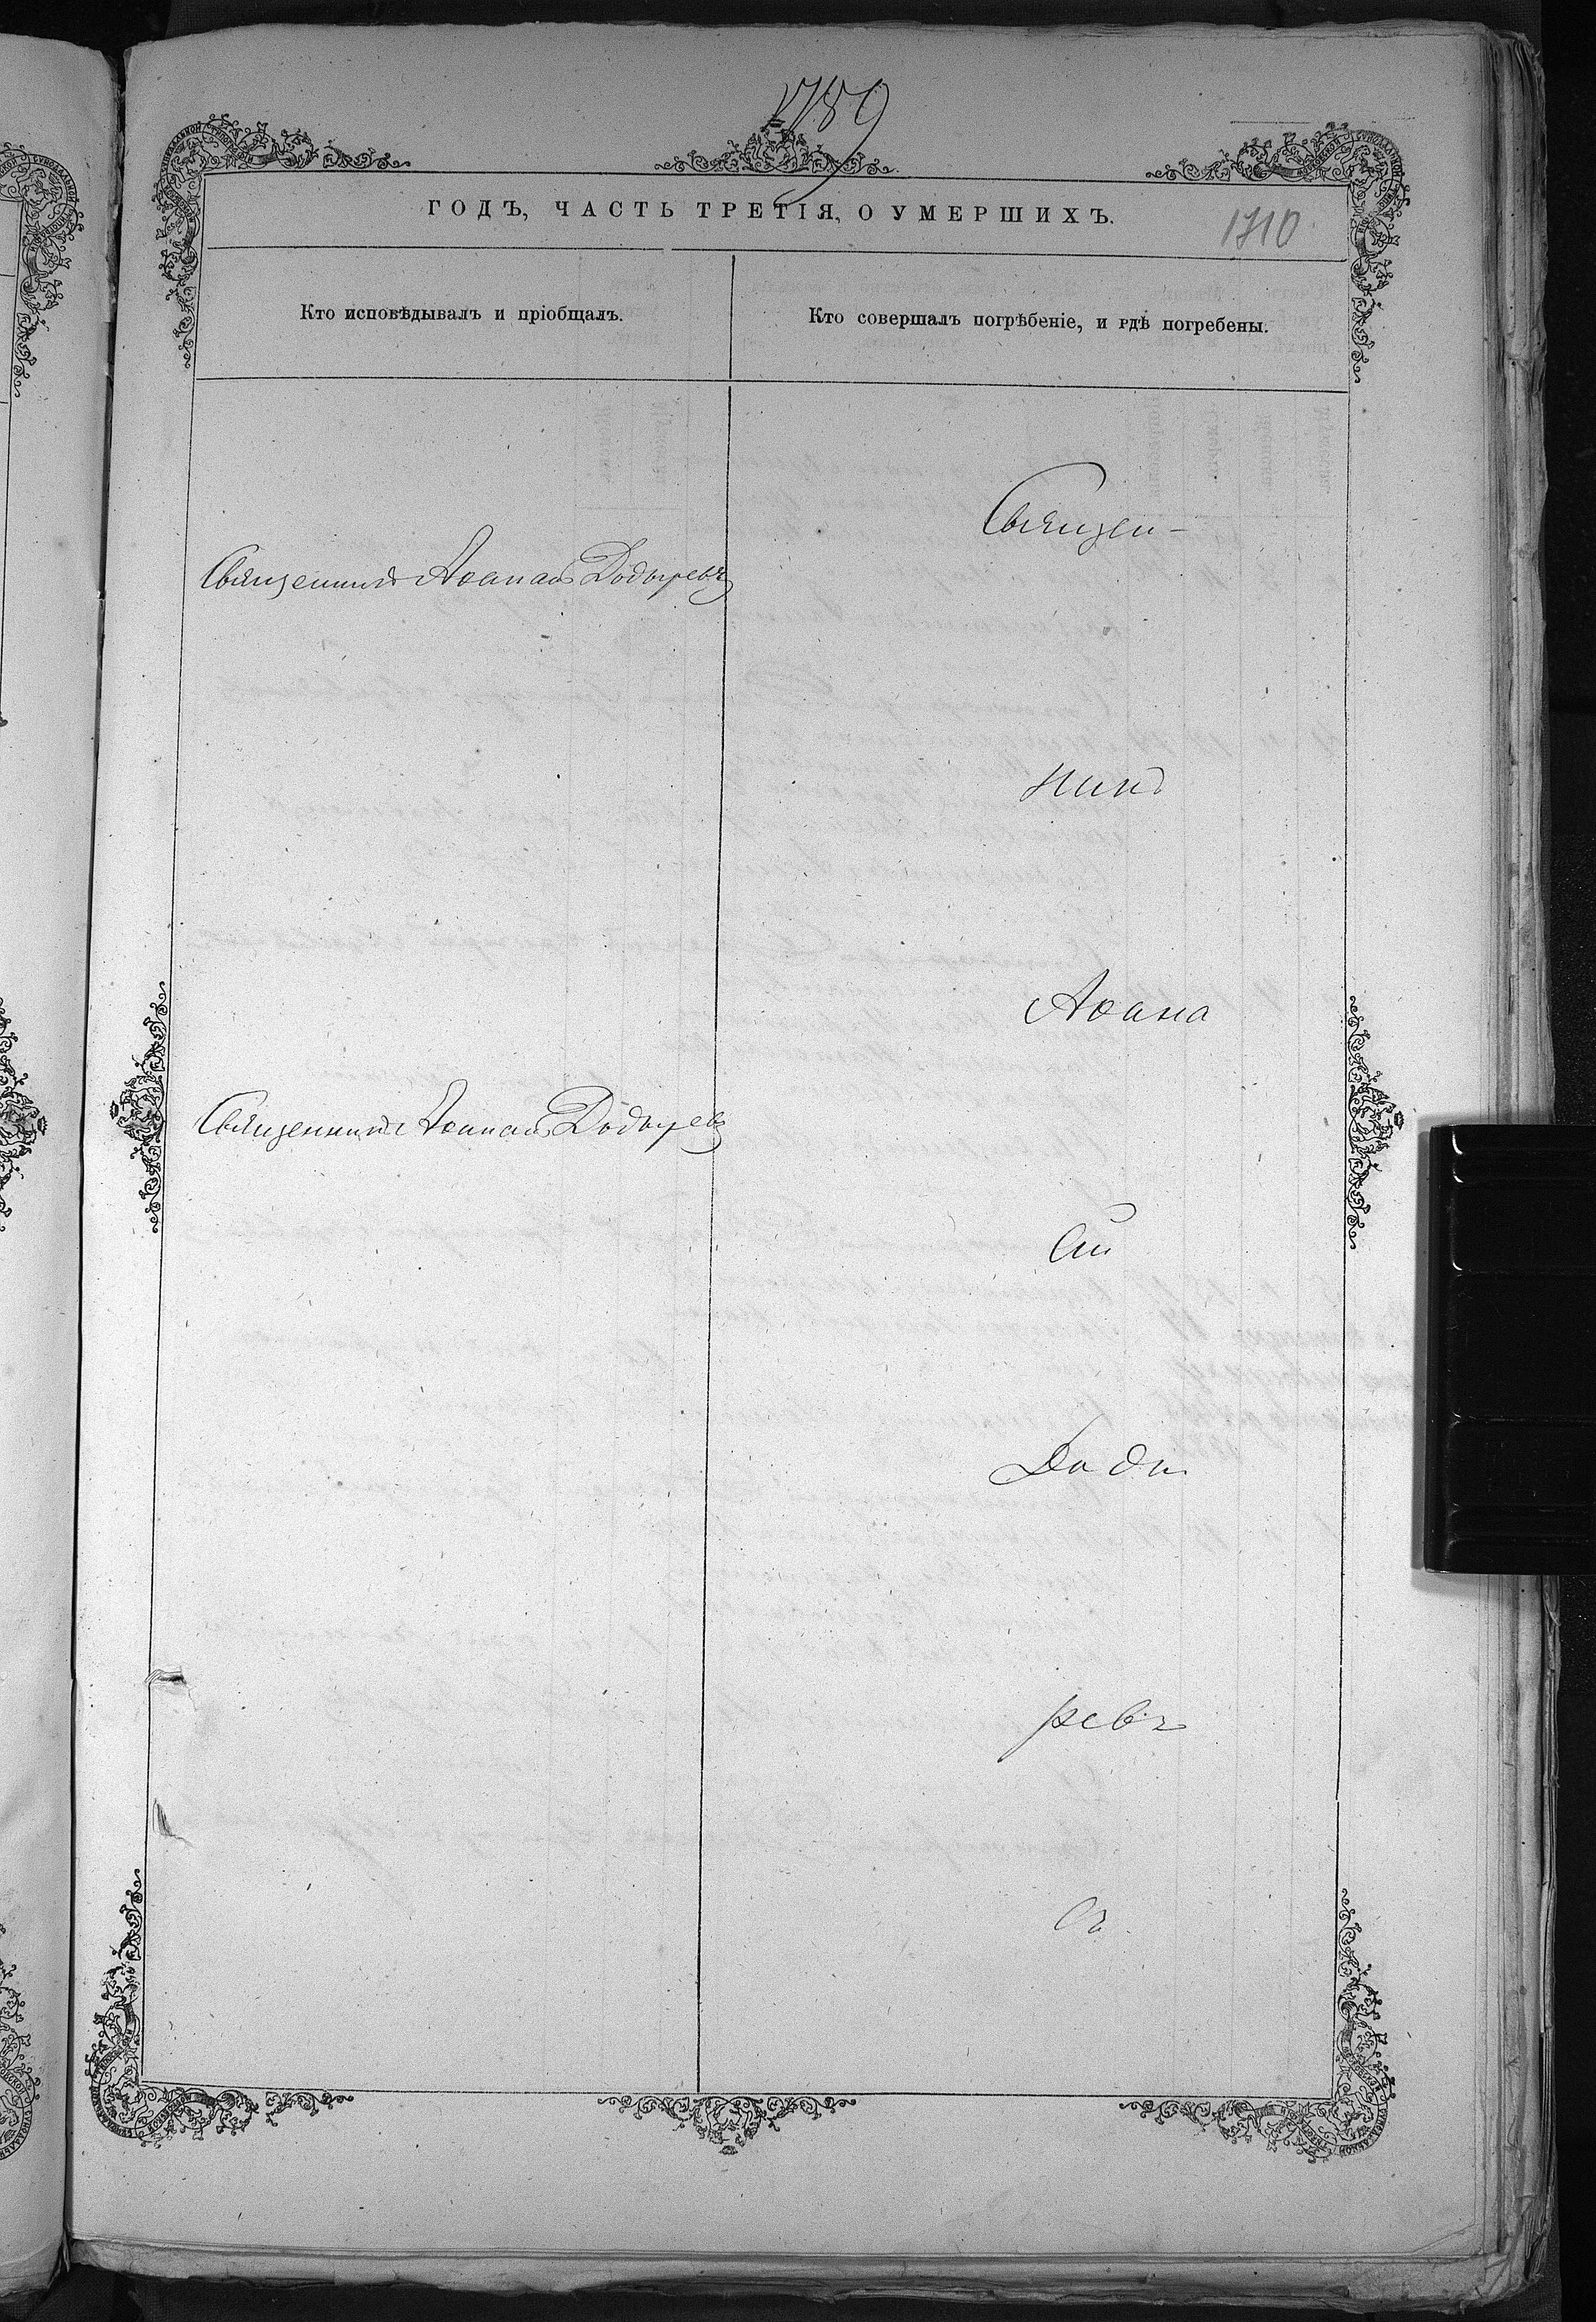 1789
ГОДЪ, ЧАСТЬ ТРЕТІЯ, О УМЕРШИХЪ.
1710
Кто исповѣдывалъ и пріобщалъ.
Кто совершалъ погрѣбеніе, и гдѣ погребены.
Священ-
Священникъ Аѳанасій Додыревъ
никъ
Аѳана
Священникъ Аѳанасій Додыревъ
сій
Доды
ревъ